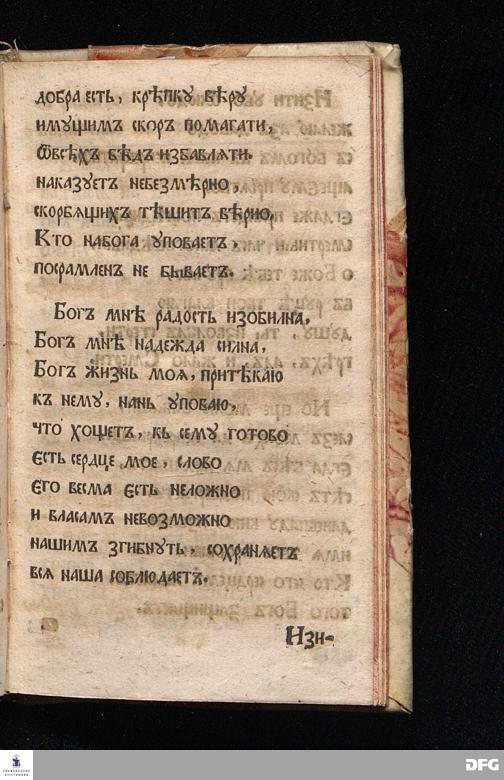 добра есть, крѣпку вѣру
имущимъ скоръ помагати,
ѿвсѣхъ бѣдъ избавляти.
наказуетъ небезмѣрно,
скорбящихъ тѣшитъ вѣрно,
Кто набога уповаетъ,
посрамленъ не бываетъ.
Богъ мнѣ радость изобилна,
Богъ мнѣ надежда силна,
Богъ жизнь моя, притѣкаю
къ нему, нань уповаю,
что хощетъ, кь сему готово
Єсть сердце мое, слово
Єго весма Єсть неложно
и власамъ невозможно
нашимъ згибнуть, сохраняетъ
вся наша соблюдаетъ.
Изи-
FRANCKESCHE
STIFTUNGEN
DFG